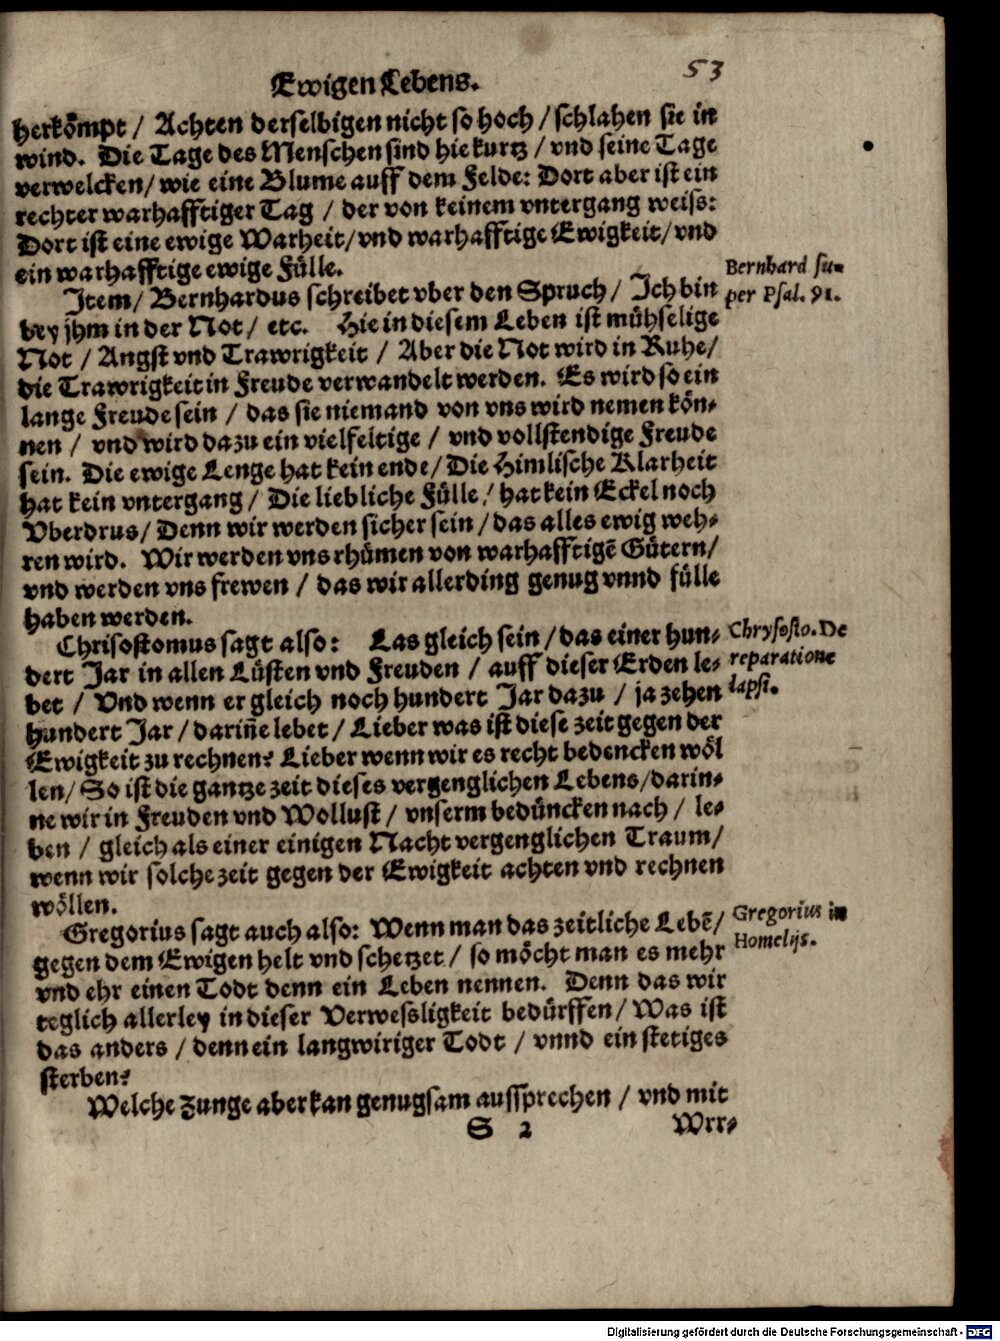 Ewigen Lebens. 53
herkömpt / Achten derselbigen nicht so hoch / schlahen sie in
wind. Die Tage des Menschen sind hie kurtz / vnd seine Tage
verwelcken / wie eine Blume auff dem Felde: Dort aber ist ein
rechter warhafftiger Tag / der von keinem vntergang weiss:
Dort ist eine ewige Warheit / vnd warhafftige Ewigkeit / vnd
ein warhafftige ewige Fülle.
Item / Bernhardus schreibet vber den Spruch / Ich bin
Bernhard su-
per Psal. 91.
bey jhm in der Not / etc. Hie in diesem Leben ist mühselige
Not / Angst vnd Trawrigkeit / Aber die Not wird in Ruhe /
die Trawrigkeit in Freude verwandelt werden. Es wird so ein
lange Freude sein / das sie niemand von vns wird nemen kön-
nen / vnd wird dazu ein vielfeltige / vnd vollstendige Freude
sein. Die ewige Lenge hat kein ende / Die Himlische Klarheit
hat kein vntergang / Die liebliche Fülle / hat kein Eckel noch
Vberdrus / Denn wir werden sicher sein / das alles ewig weh-
ren wird. Wir werden vns rhümen von warhafftigē Gütern /
vnd werden vns frewen / das wir allerding genug vnnd fülle
haben werden.
Chrisostomus sagt also: Las gleich sein / das einer hun-
Chrysosto. De
reparatione
lapsi.
dert Jar in allen Lüsten vnd Freuden / auff dieser Erden le-
bet / Vnd wenn er gleich noch hundert Jar dazu / ja zehen
hundert Jar / dariñe lebet / Lieber was ist diese zeit gegen der
Ewigkeit zu rechnen? Lieber wenn wir es recht bedencken wöl
len / So ist die gantze zeit dieses vergenglichen Lebens / darin-
ne wir in Freuden vnd Wollust / vnserm bedüncken nach / le-
ben / gleich als einer einigen Nacht vergenglichen Traum /
wenn wir solche zeit gegen der Ewigkeit achten vnd rechnen
wöllen.
Gregorius sagt auch also: Wenn man das zeitliche Lebē /
Gregorius in
Homelijs.
gegen dem Ewigen helt vnd schetzet / so möcht man es mehr
vnd ehr einen Todt denn ein Leben nennen. Denn das wir
teglich allerley in dieser Verwessligkeit bedürffen / Was ist
das anders / denn ein langwiriger Todt / vnnd ein stetiges
sterben?
Welche Zunge aber kan genugsam aussprechen / vnd mit
S 2 Wrr-
Digitalisierung gefördert durch die Deutsche Forschungsgemeinschaft - DFG